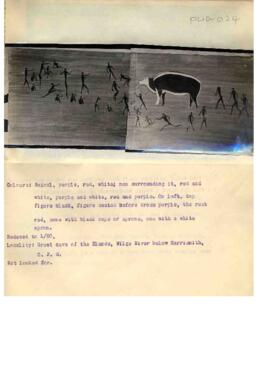 Coloured Animal, purple, red, white; men surrounding it, red and
white, purple and white, red and purple. On left, top
figure black, figure seated before cross purple, the rest
red, some with black caps or aprons, one with a white
apron.
Reduced to 1/20.
Locality: Great cave of the Elands, Wilge River below Harrismith,
O. F. S.
Not looked for.